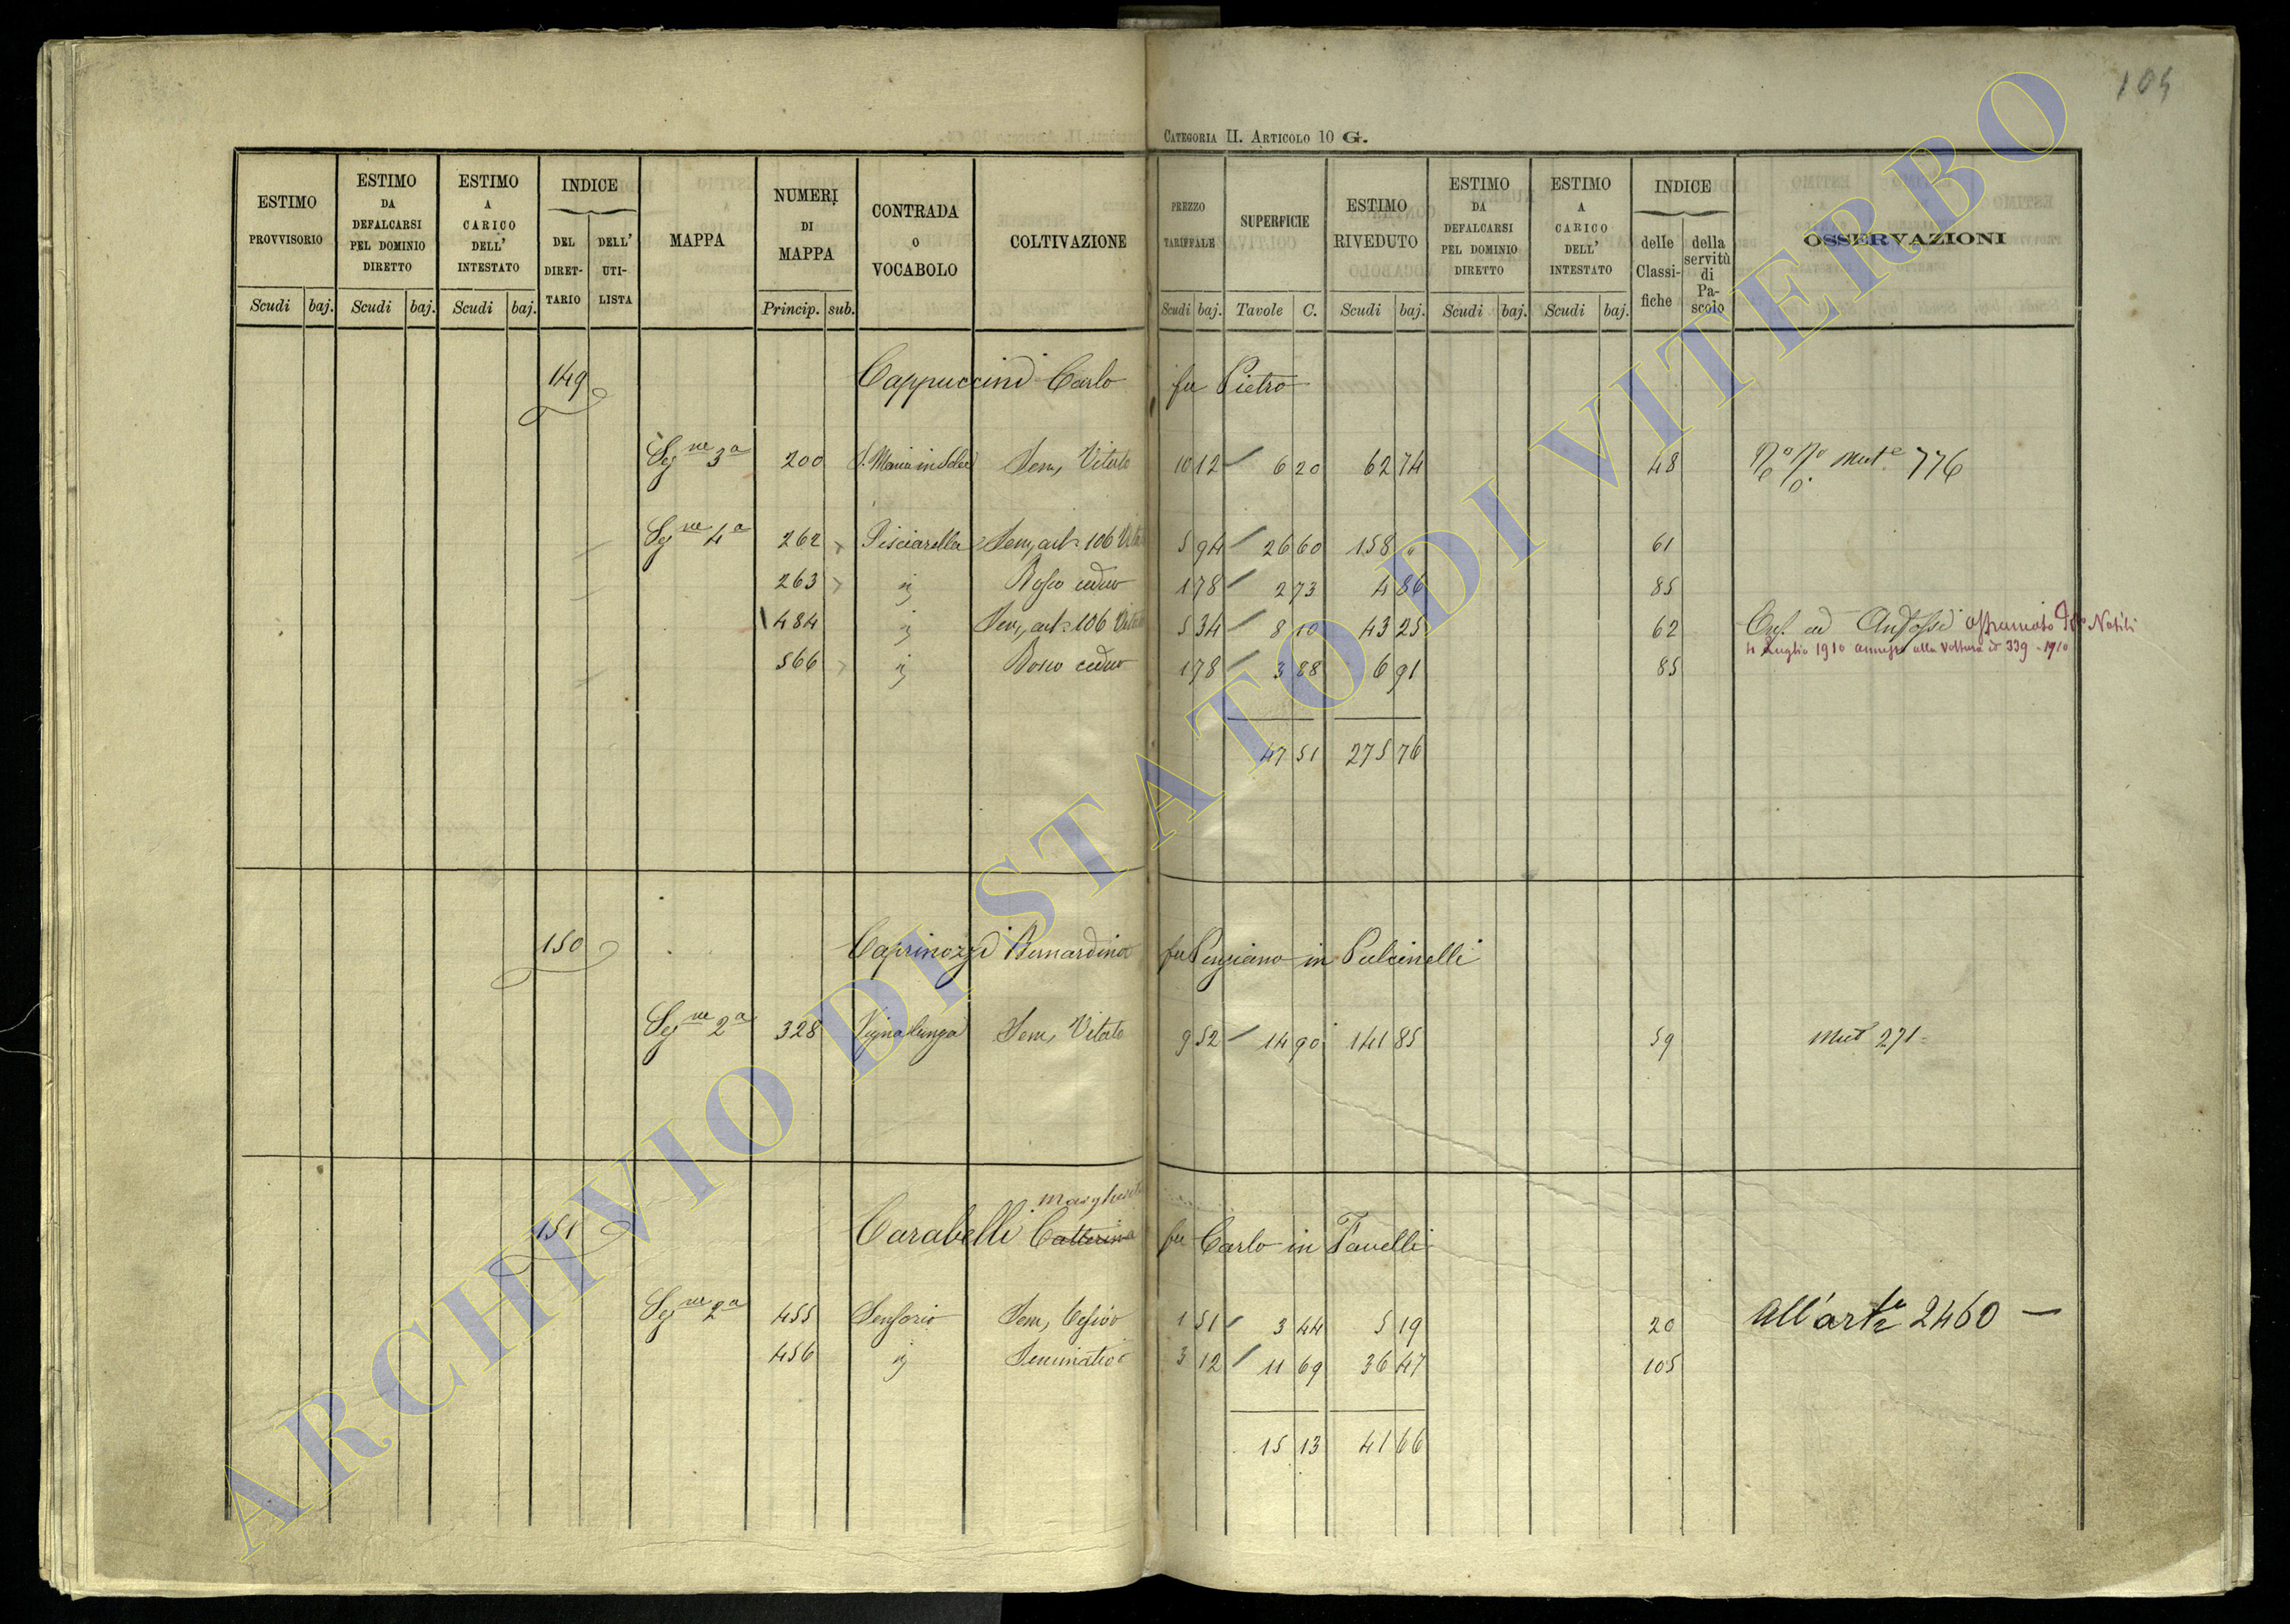 104
CATEGORIA II. ARTICOLO 10 G.
ESTIMO PROVVISORIO
ESTIMO DA DEFALCARSI PEL DOMINIO DIRETTO
ESTIMO A CARICO DELL' INTESTATO
INDICE
DEL DIRET- TARIO
DELL' UTI- LISTA
MAPPA
NUMERI DI MAPPA
CONTRADA O VOCABOLO
COLTIVAZIONE
PREZZO TARIFFALE
SUPERFICIE
ESTIMO RIVEDUTO
ESTIMO DA DEFALCARSI PEL DOMINIO DIRETTO
ESTIMO A CARICO DELL' INTESTATO
INDICE
delle Classi- fiche
della servitù di Pa- scolo
OSSERVAZIONI
Scudi baj. Scudi baj. Scudi baj. Princip. sub. Scudi baj. Tavole C. Scudi baj. Scudi baj. Scudi baj.
149 Cappuccini Carlo fu Pietro
Seg.ne 3a 200 S. Maria in Sem, Vitato 10 12 6 20 62 74 48 mut.e 776
Seg.ne 4a 262 Pisciarella Sem, art. 106 5 94 26 60 158 " 61
263 " Bosco ceduo 1 78 2 73 4 86 85
484 " Sem, art. 106 5 34 8 10 43 25 62 Enf. ad affrancato Nobili
4 Luglio 1910 annesso alla Voltura 339 - 1910
566 " Bosco ceduo 1 78 3 88 6 91 85
47 51 275 76
150 Caprinozzi Bernardina fu in Pulcinelli
Seg.ne 2a 328 Vignalunga Sem, Vitato 9 52 14 90 141 85 59 Mut 271
Margherita
151 Carabelli Catterina fu Carlo in Favelli
Seg.ne 2a 455 Sem, 1 51 3 44 5 19 20 all'art. 2460
456 " Seminativo 3 12 11 69 36 47 105
15 13 41 66
ARCHIVIO DI STATO DI VITERBO